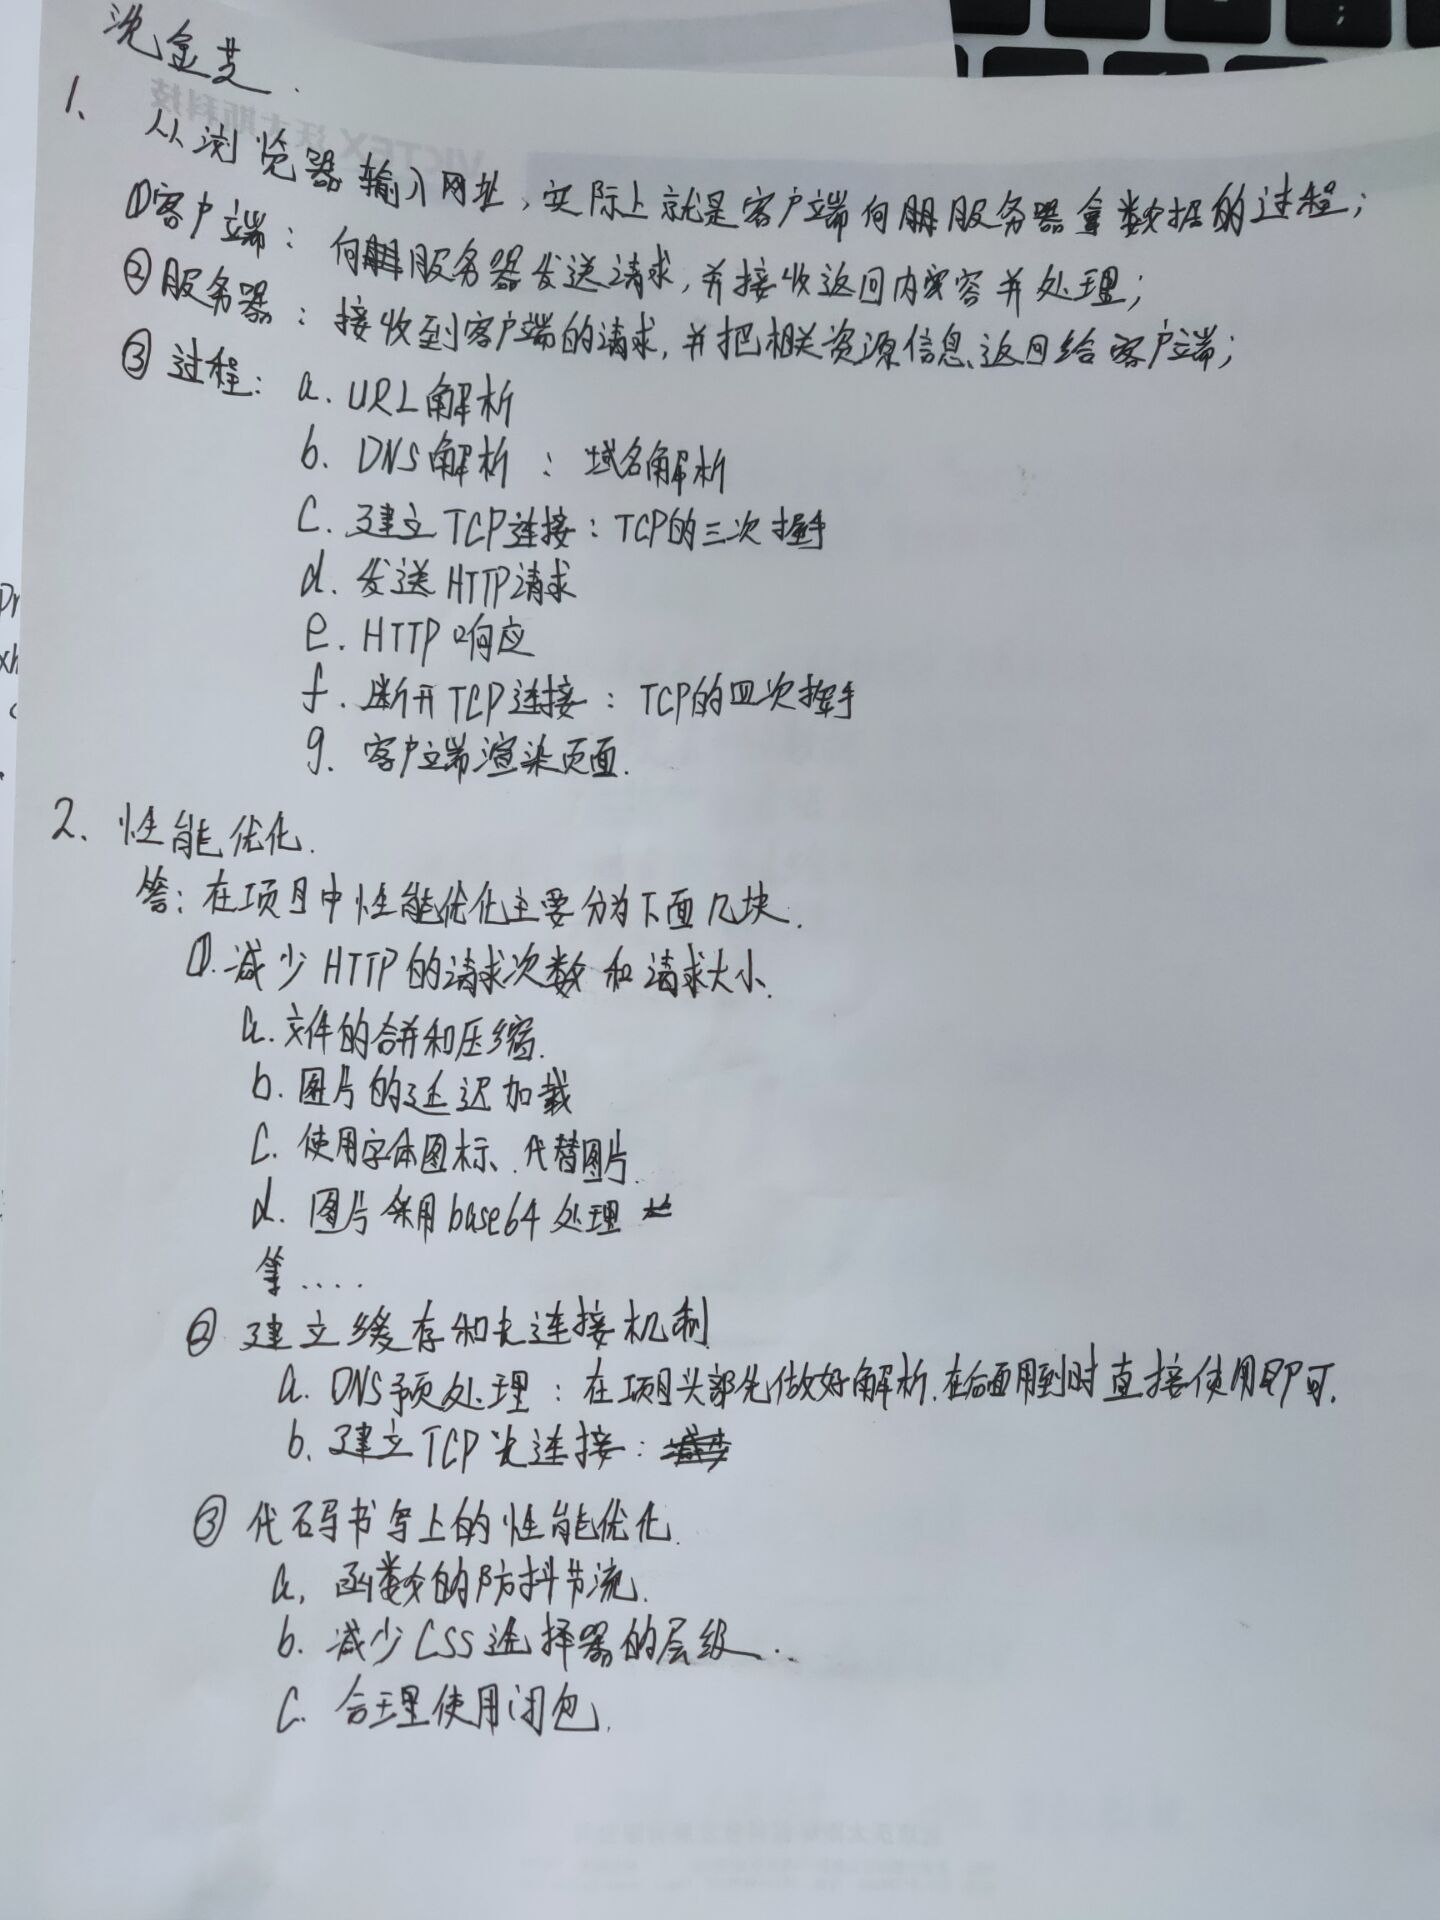 沈金芝.
1、
从浏览器输入网址,实际上就是客户端向服务器拿数据的过程;
①客户端: 向服务器发送请求,并接收返回内容并处理;
②服务器: 接收到客户端的请求,并把相关资源信息返回给客户端;
③过程: a. URL解析
b. DNS解析: 域名解析
c. 建立TCP连接: TCP的三次握手
d. 发送HTTP请求
e. HTTP响应
f. 断开TCP连接: TCP的四次挥手
g. 客户端渲染页面.
2、性能优化.
答: 在项目中性能优化主要分为下面几块.
①.减少HTTP的请求次数和请求大小.
a.文件的合并和压缩.
b.图片的延迟加载
c.使用字体图标、代替图片.
d.图片采用base64处理
等....
②建立缓存和长连接机制
a. DNS预处理: 在项目头部先做好解析.在后面用到时直接使用即可.
b. 建立TCP长连接:
③代码书写上的性能优化.
a. 函数的防抖节流.
b. 减少CSS选择器的层级...
c. 合理使用闭包.